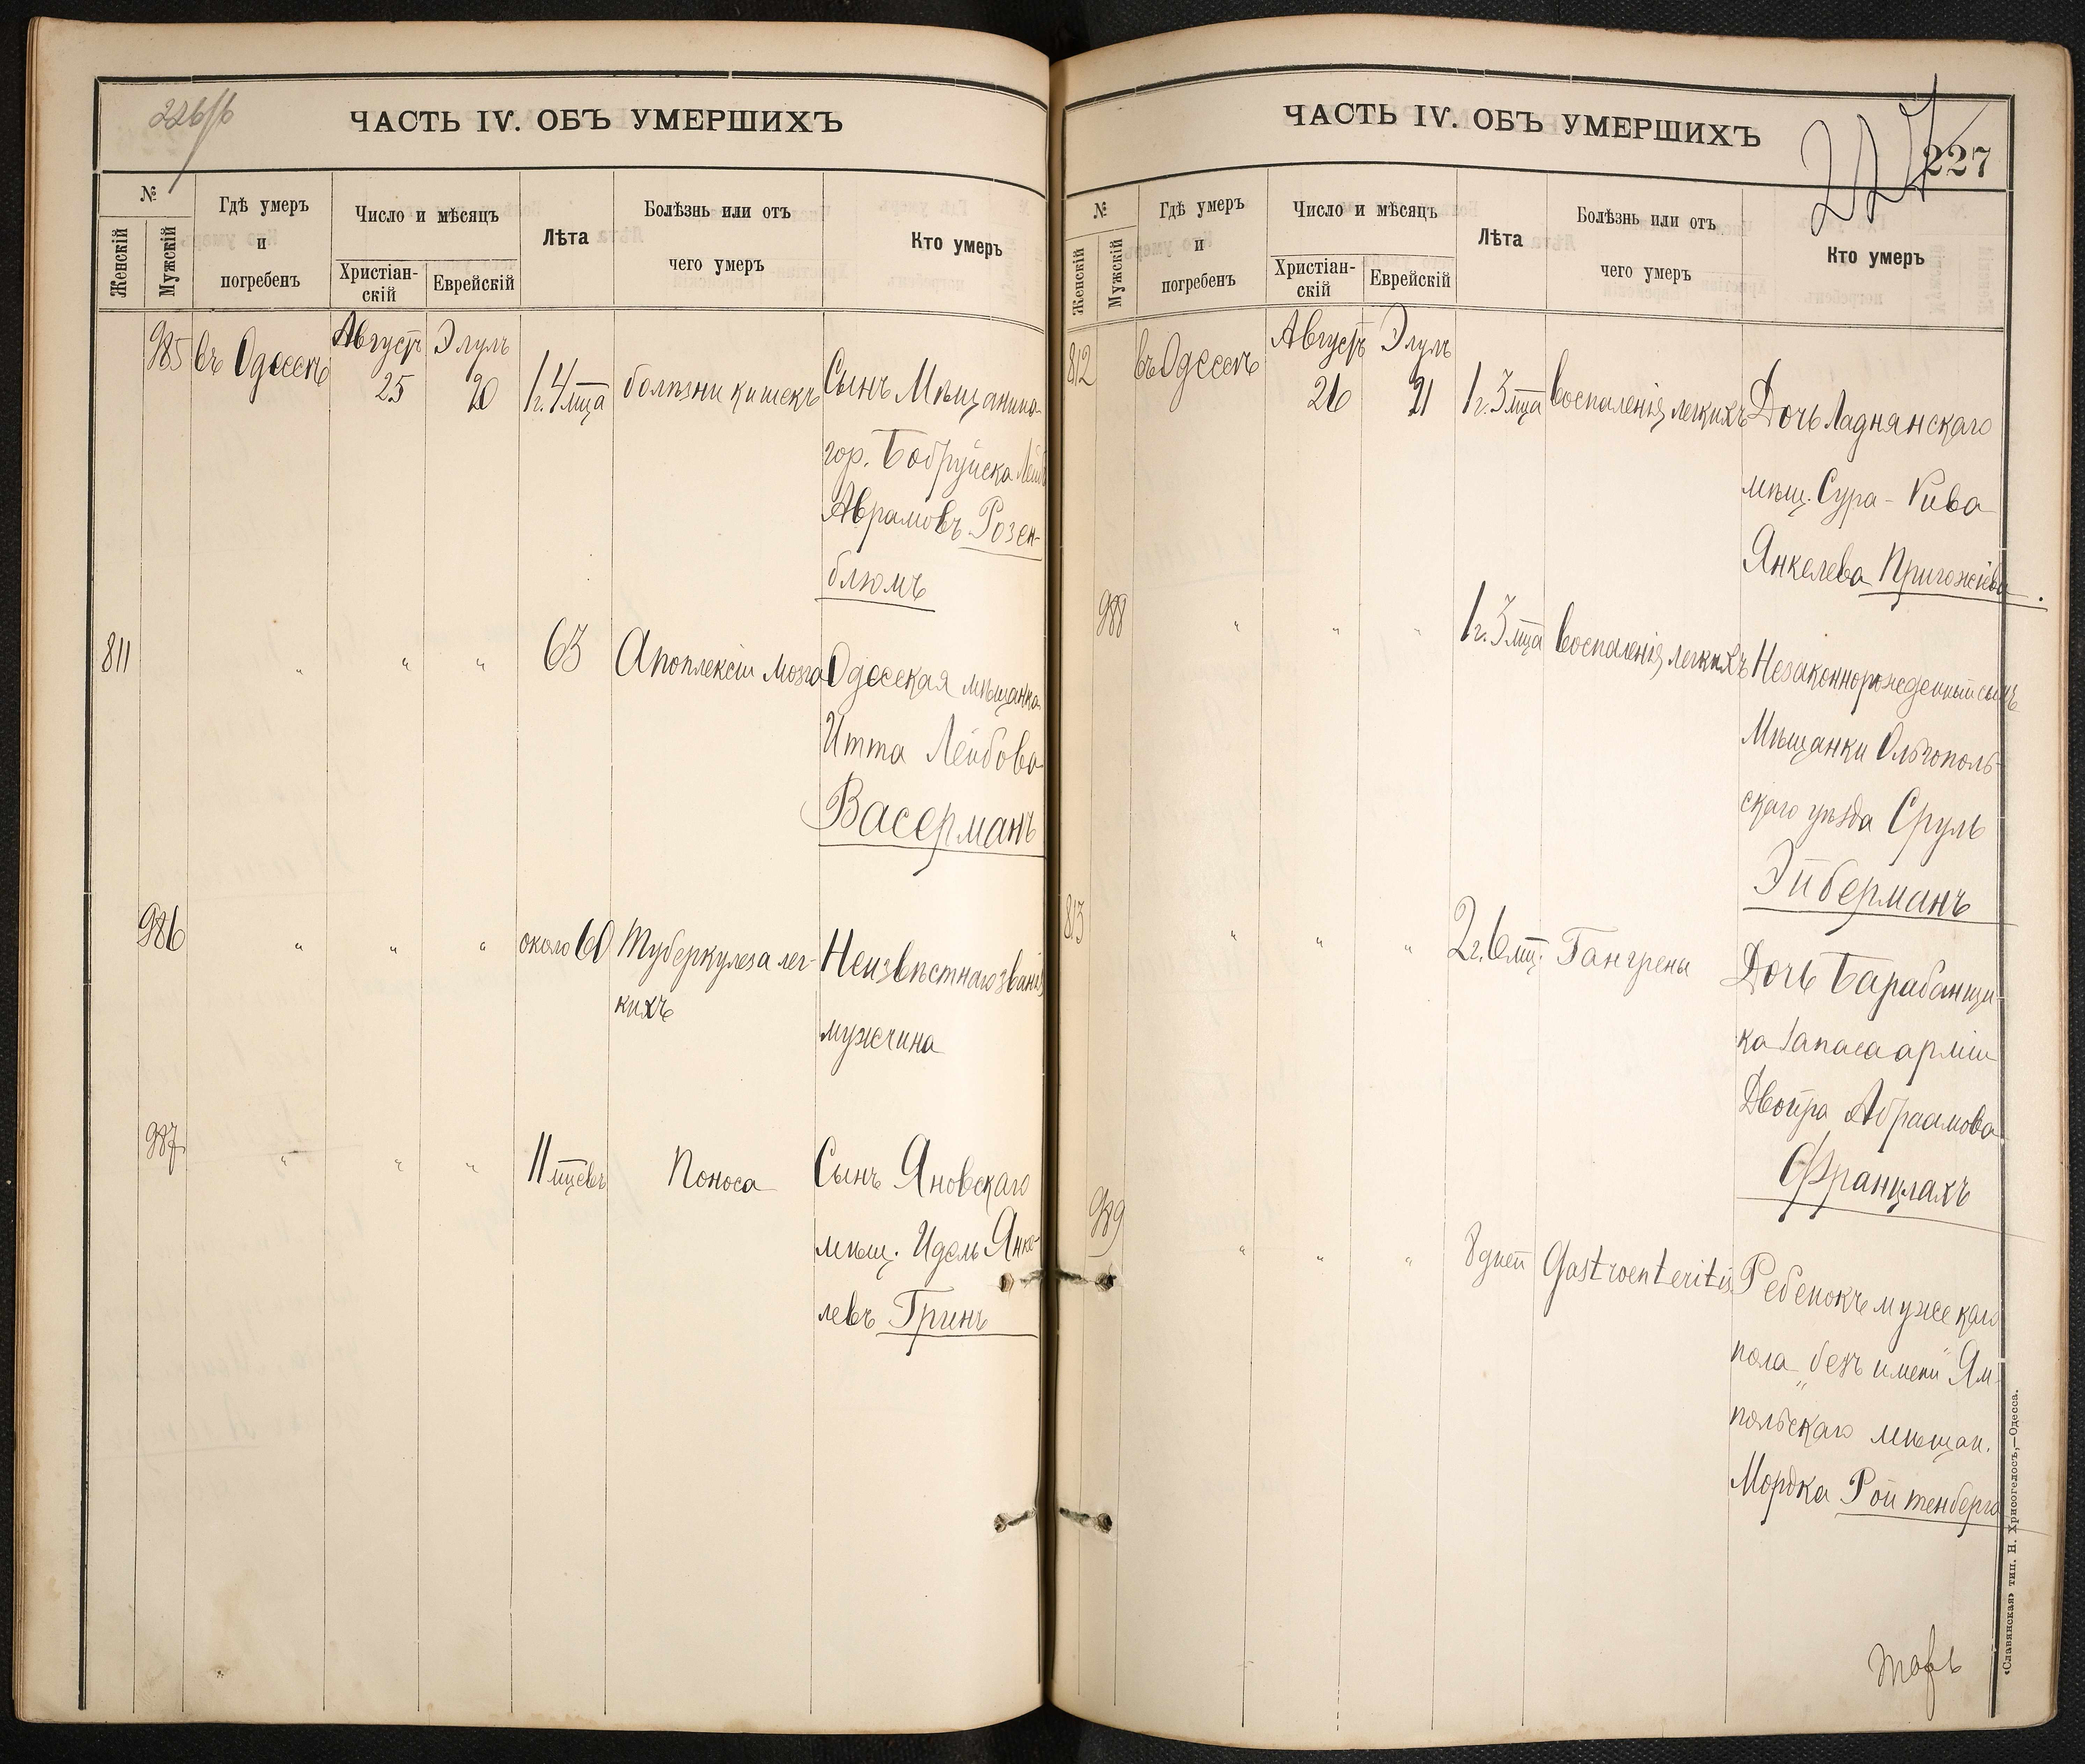 226/б
ЧАСТЬ IV. ОБЪ УМЕРШИХЪ
№
Женскій
Мужскій
Гдѣ умеръ
и
погребенъ
Число и мѣсяцъ
Христіан-
скій
Еврейскій
Лѣта
Болѣзнь или отъ
чего умеръ
Кто умеръ
985 въ Одессѣ Августъ 25 Элулъ 20 1 г. 4 мца болѣзни кишекъ Сынъ Мѣщанина
гор. Бобруйска Лейб
Аврамовъ Розен-
блюмъ
811 " " " 63 Апоплексіи мозга Одесская мѣщанка
Итта Лейбова
Васерманъ
986 " " " около 60 Туберкулеза лег- Неизвѣстнаго званія
кихъ
мужчина
987 " " " 11 мцевъ Поноса Сынъ Яновскаго
мѣщ. Идель Янке-
левъ Гринъ
ЧАСТЬ IV. ОБЪ УМЕРШИХЪ
227
227
№
Женскій
Мужскій
Гдѣ умеръ
и
погребенъ
Число и мѣсяцъ
Христіан-
скій
Еврейскій
Лѣта
Болѣзнь или отъ
чего умеръ
Кто умеръ
812 въ Одессѣ Августъ 26 Элулъ 21 1 г. 3 мца воспаленія легкихъ Дочь Ладнянскаго
мѣщ. Сура-Рива
Янкелева Пригожіева.
988 " " " 1 г. 3 мца воспаленія легкихъ Незаконнорожденный сынъ
Мѣщанки Ольгополь-
скаго уѣзда Сруль
Эйберманъ
813 " " " 2 г. 6 мц. Гангрены Дочь Барабанщи-
ка запаса арміи
Двойра Абраамова
Францлахъ
989 " " " 8 дней Gastroenteritis Ребенокъ мужскаго
пола „безъ имени" Ям-
польскаго мѣщан.
Мордка Ройтенберга
«Славянская» тип. Н. Хрисогелосъ,—Одесса.